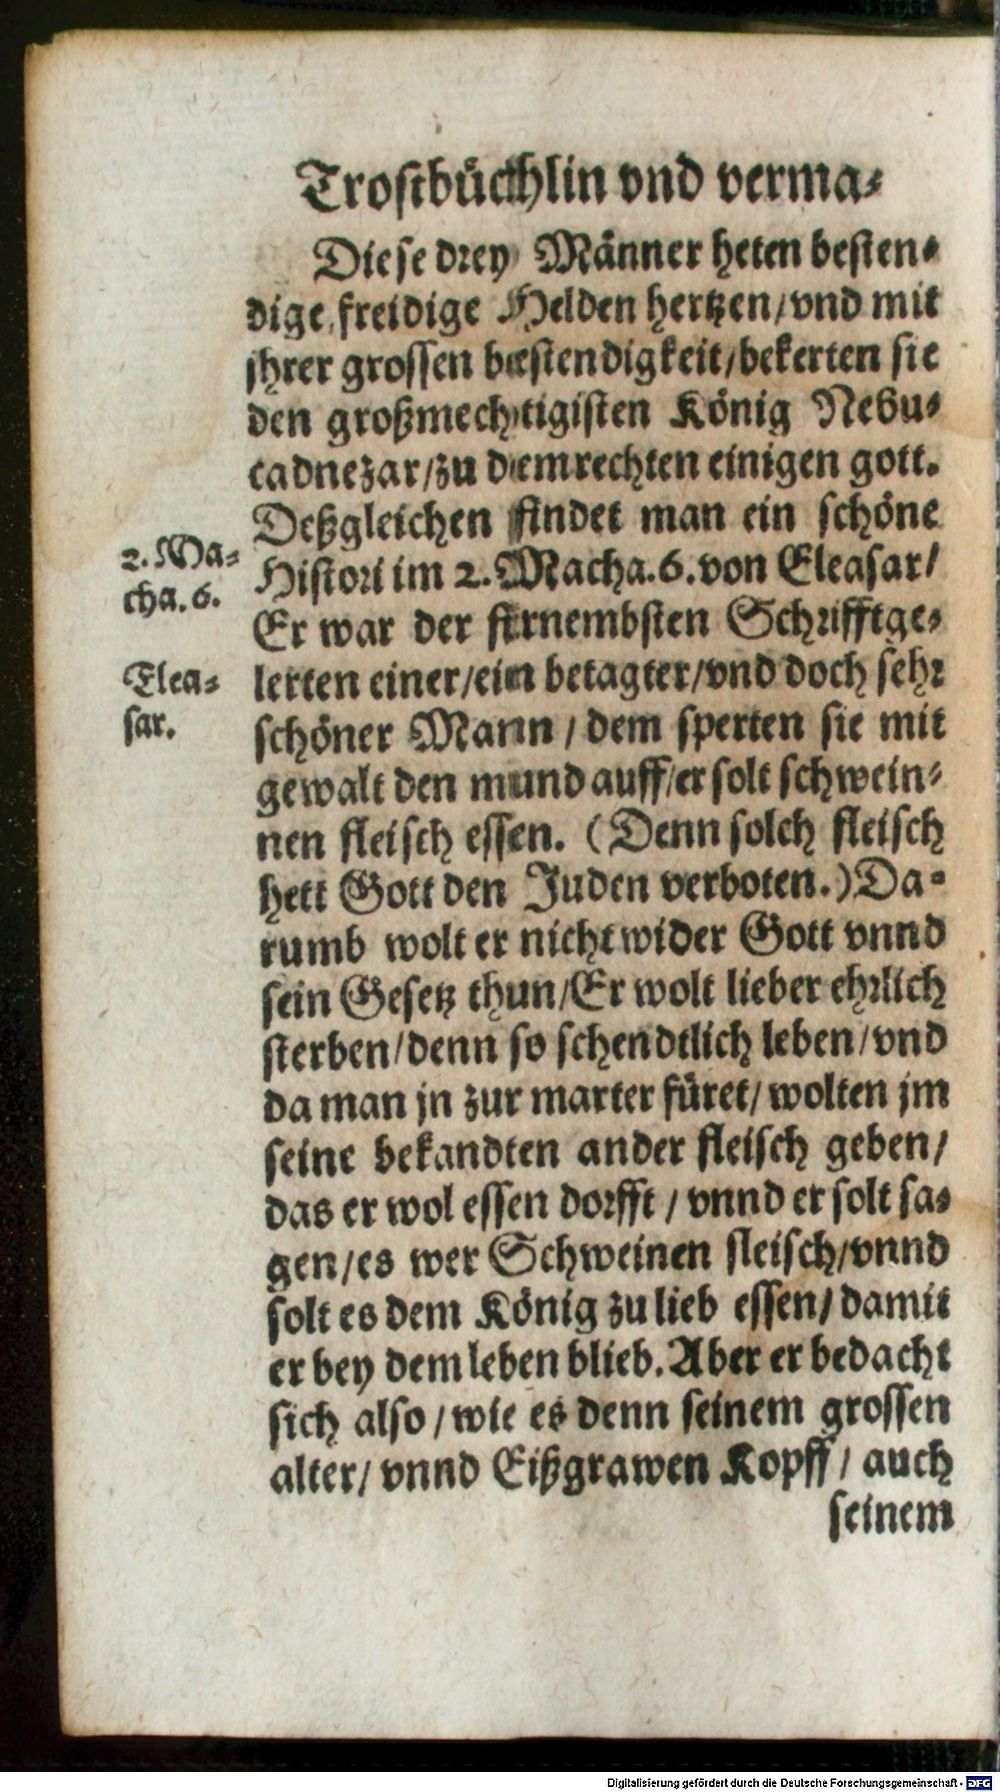 Trostbüchlin vnd verma-
Diese drey Männer heten besten-
dige freidige Helden hertzen/vnd mit
jhrer grossen bestendigkeit/bekerten sie
den großmechtigisten König Nebu-
cadnezar/zu dem rechten einigen gott.
Deßgleichen findet man ein schöne
2. Ma-
cha. 6.
Histori im 2. Macha. 6. von Eleasar/
Er war der fürnembsten Schrifftge-
Elea-
sar.
lerten einer/ein betagter/vnd doch sehr
schöner Mann / dem sperten sie mit
gewalt den mund auff/er solt schwein-
nen fleisch essen. (Denn solch fleisch
hett Gott den Juden verboten.) Da-
rumb wolt er nicht wider Gott vnnd
sein Gesetz thun/Er wolt lieber ehrlich
sterben/denn so schendtlich leben/vnd
da man jn zur marter füret/ wolten jm
seine bekandten ander fleisch geben/
das er wol essen dorfft / vnnd er solt sa-
gen/es wer Schweinen fleisch/vnnd
solt es dem König zu lieb essen/ damit
er bey dem leben blieb. Aber er bedacht
sich also / wie es denn seinem grossen
alter/ vnnd Eißgrawen Kopff / auch
seinem
Digitalisierung gefördert durch die Deutsche Forschungsgemeinschaft - DFG